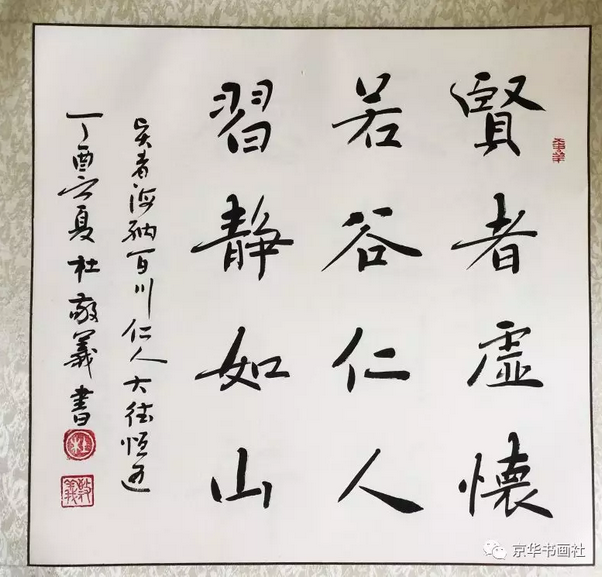 賢者虛懷
若谷仁人
習静如山
者海納百川仁人大德恒
丁酉夏杜敬義書
杜
敬義
京华书画社